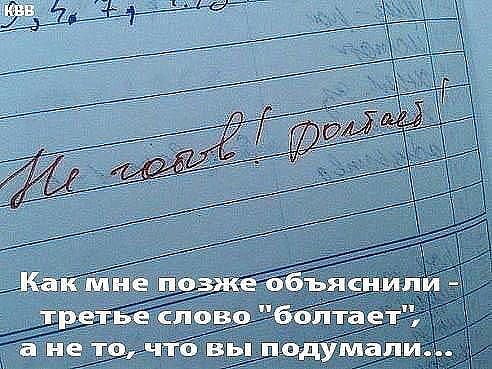 КВВ
, 4, 7,
Не готов! Болтает!
Как мне позже объяснили -
третье слово "болтает",
а не то, что вы подумали...